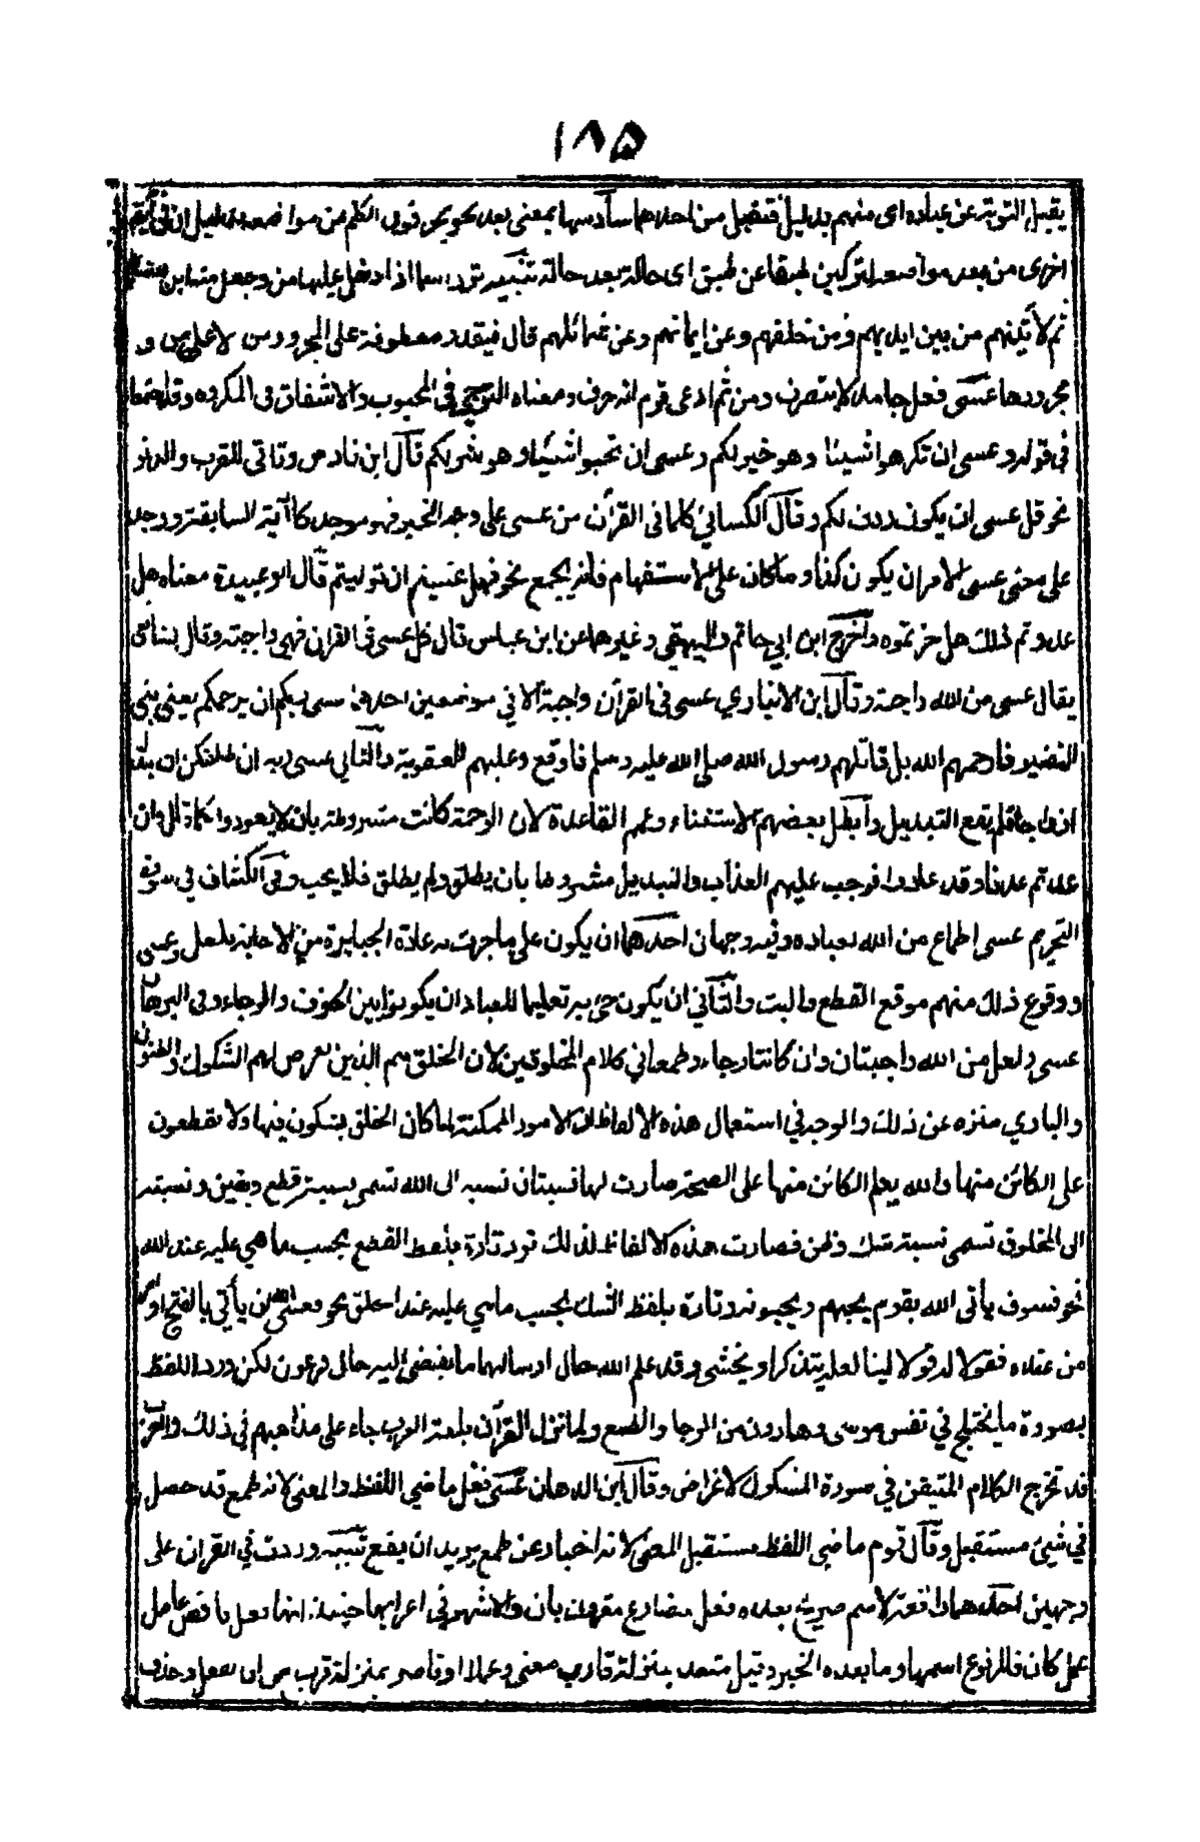 ١٨٥
يقبل التوبة عن عباده اى منهم بدليل فتقبل من احدهما سادسها بمعنى بعد نحو يحرفون الكلم عن مواضعه بدليل ان فى آية
اخرى من بعد مواضعه لتركبن طبقا عن طبق اى حالة بعد حالة تنبيه ترد اسما اذا دخل عليها من وجعل منه ابن هشام
ثم لآتينهم من بين ايديهم ومن خلفهم وعن ايمانهم وعن شمائلهم قال فيقدر معطوفة على المجرور من لا على من و
مجرورها عسى فعل جامد لا يتصرف ومن ثم ادعى قوم انه حرف ومعناه الترجي فى المحبوب والاشفاق فى المكروه وقد اجتمعا
فى قوله وعسى ان تكرهوا شيئا وهو خير لكم وعسى ان تحبوا شيئا وهو شر لكم قال ابن فارس وتاتى للقرب والدنو
نحو قل عسى ان يكون ردف لكم وقال الكسائي كلما فى القرآن من عسى على وجه الخبر فهو موحد كالآية السابقة ووجه
على معنى عسى الامر ان يكون كذا وما كان على الاستفهام فانه يجمع نحو فهل عسيتم ان توليتم قال ابو عبيدة معناه هل
عدوتم ذلك هل جزتموه واخرج ابن ابي حاتم والبيهقي وغيرهما عن ابن عباس قال كل عسى فى القرآن فهى واجبة وقال الشافعى
يقال عسى من الله واجبة وقال ابن الانباري عسى فى القرآن واجبة الا في موضعين احدهما عسى ربكم ان يرحمكم يعني بني
النضير فما رحمهم الله بل قاتلهم رسول الله صلى الله عليه وسلم فاوقع وعليهم العقوبة والثاني عسى ربه ان طلقكن ان يبدله
ازواجا فلم يقع التبديل وأبطل بعضهم الاستثناء وعمم القاعدة لان الرحمة كانت مشروطة بان لا يعودوا كما قال وان
عدتم عدنا وقد عادوا فوجب عليهم العذاب والتبديل مشروطا بان يطلق ولم يطلق فلا يجب وفى الكشاف في سورة
التحريم عسى اطماع من الله لعباده وفيه وجهان احدهما ان يكون على ما جرت به عادة الجبابرة من الاجابة بلعل وعسى
ووقوع ذلك منهم موقع القطع والبت والثاني ان يكون جئ به تعليما للعباد ان يكونوا بين الخوف والرجاء وفى البرهان
عسى ولعل من الله واجبتان وان كانتا رجاء وطمعا في كلام المخلوقين لان الخلق هم الذين يعرض لهم الشكوك والظنون
والباري منزه عن ذلك والوجه في استعمال هذه الالفاظ ان الامور الممكنة لما كان الخلق يشكون فيها ولا يقطعون
على الكائن منها والله يعلم الكائن منها على الصحة صارت لها نسبتان نسبة الى الله تسمى نسبة قطع ويقين ونسبة
الى المخلوق تسمى نسبة شك وظن فصارت هذه الالفاظ لذلك ترد تارة بلفظ القطع بحسب ما هي عليه عند الله
نحو فسوف يأتى الله بقوم يحبهم ويحبونه وتارة بلفظ الشك بحسب ما هي عليه عند الخلق نحو فعسى الله ان يأتي بالفتح او امر
من عنده فقولا له قولا لينا لعله يتذكر او يخشى وقد علم الله حال ارسالهما ما يفضى اليه حال فرعون لكن ورد اللفظ
بصورة ما يختلج في نفس موسى وهارون من الرجا والطمع ولما نزل القرآن بلغة العرب جاء على مذاهبهم في ذلك والعرب
قد تخرج الكلام المتيقن في صورة المشكوك لاغراض وقال ابن الدهان عسى فعل ماضي اللفظ والمعنى لانه طمع قد حصل
في شئ مستقبل وقال قوم ماضى اللفظ مستقبل المعنى لانه اخبار عن طمع يريد ان يقع تنبيه وردت في القرآن على
وجهين احدهما رافعة لاسم صريح بعده فعل مضارع مقرون بان والاشهر في اعرابها حينئذ انها فعل ناقص عامل
عمل كان فالمرفوع اسمها وما بعده الخبر وقيل متعد بمنزلة قارب معنى وعملا او قاصر بمنزلة قرب من ان يفعل وحذف